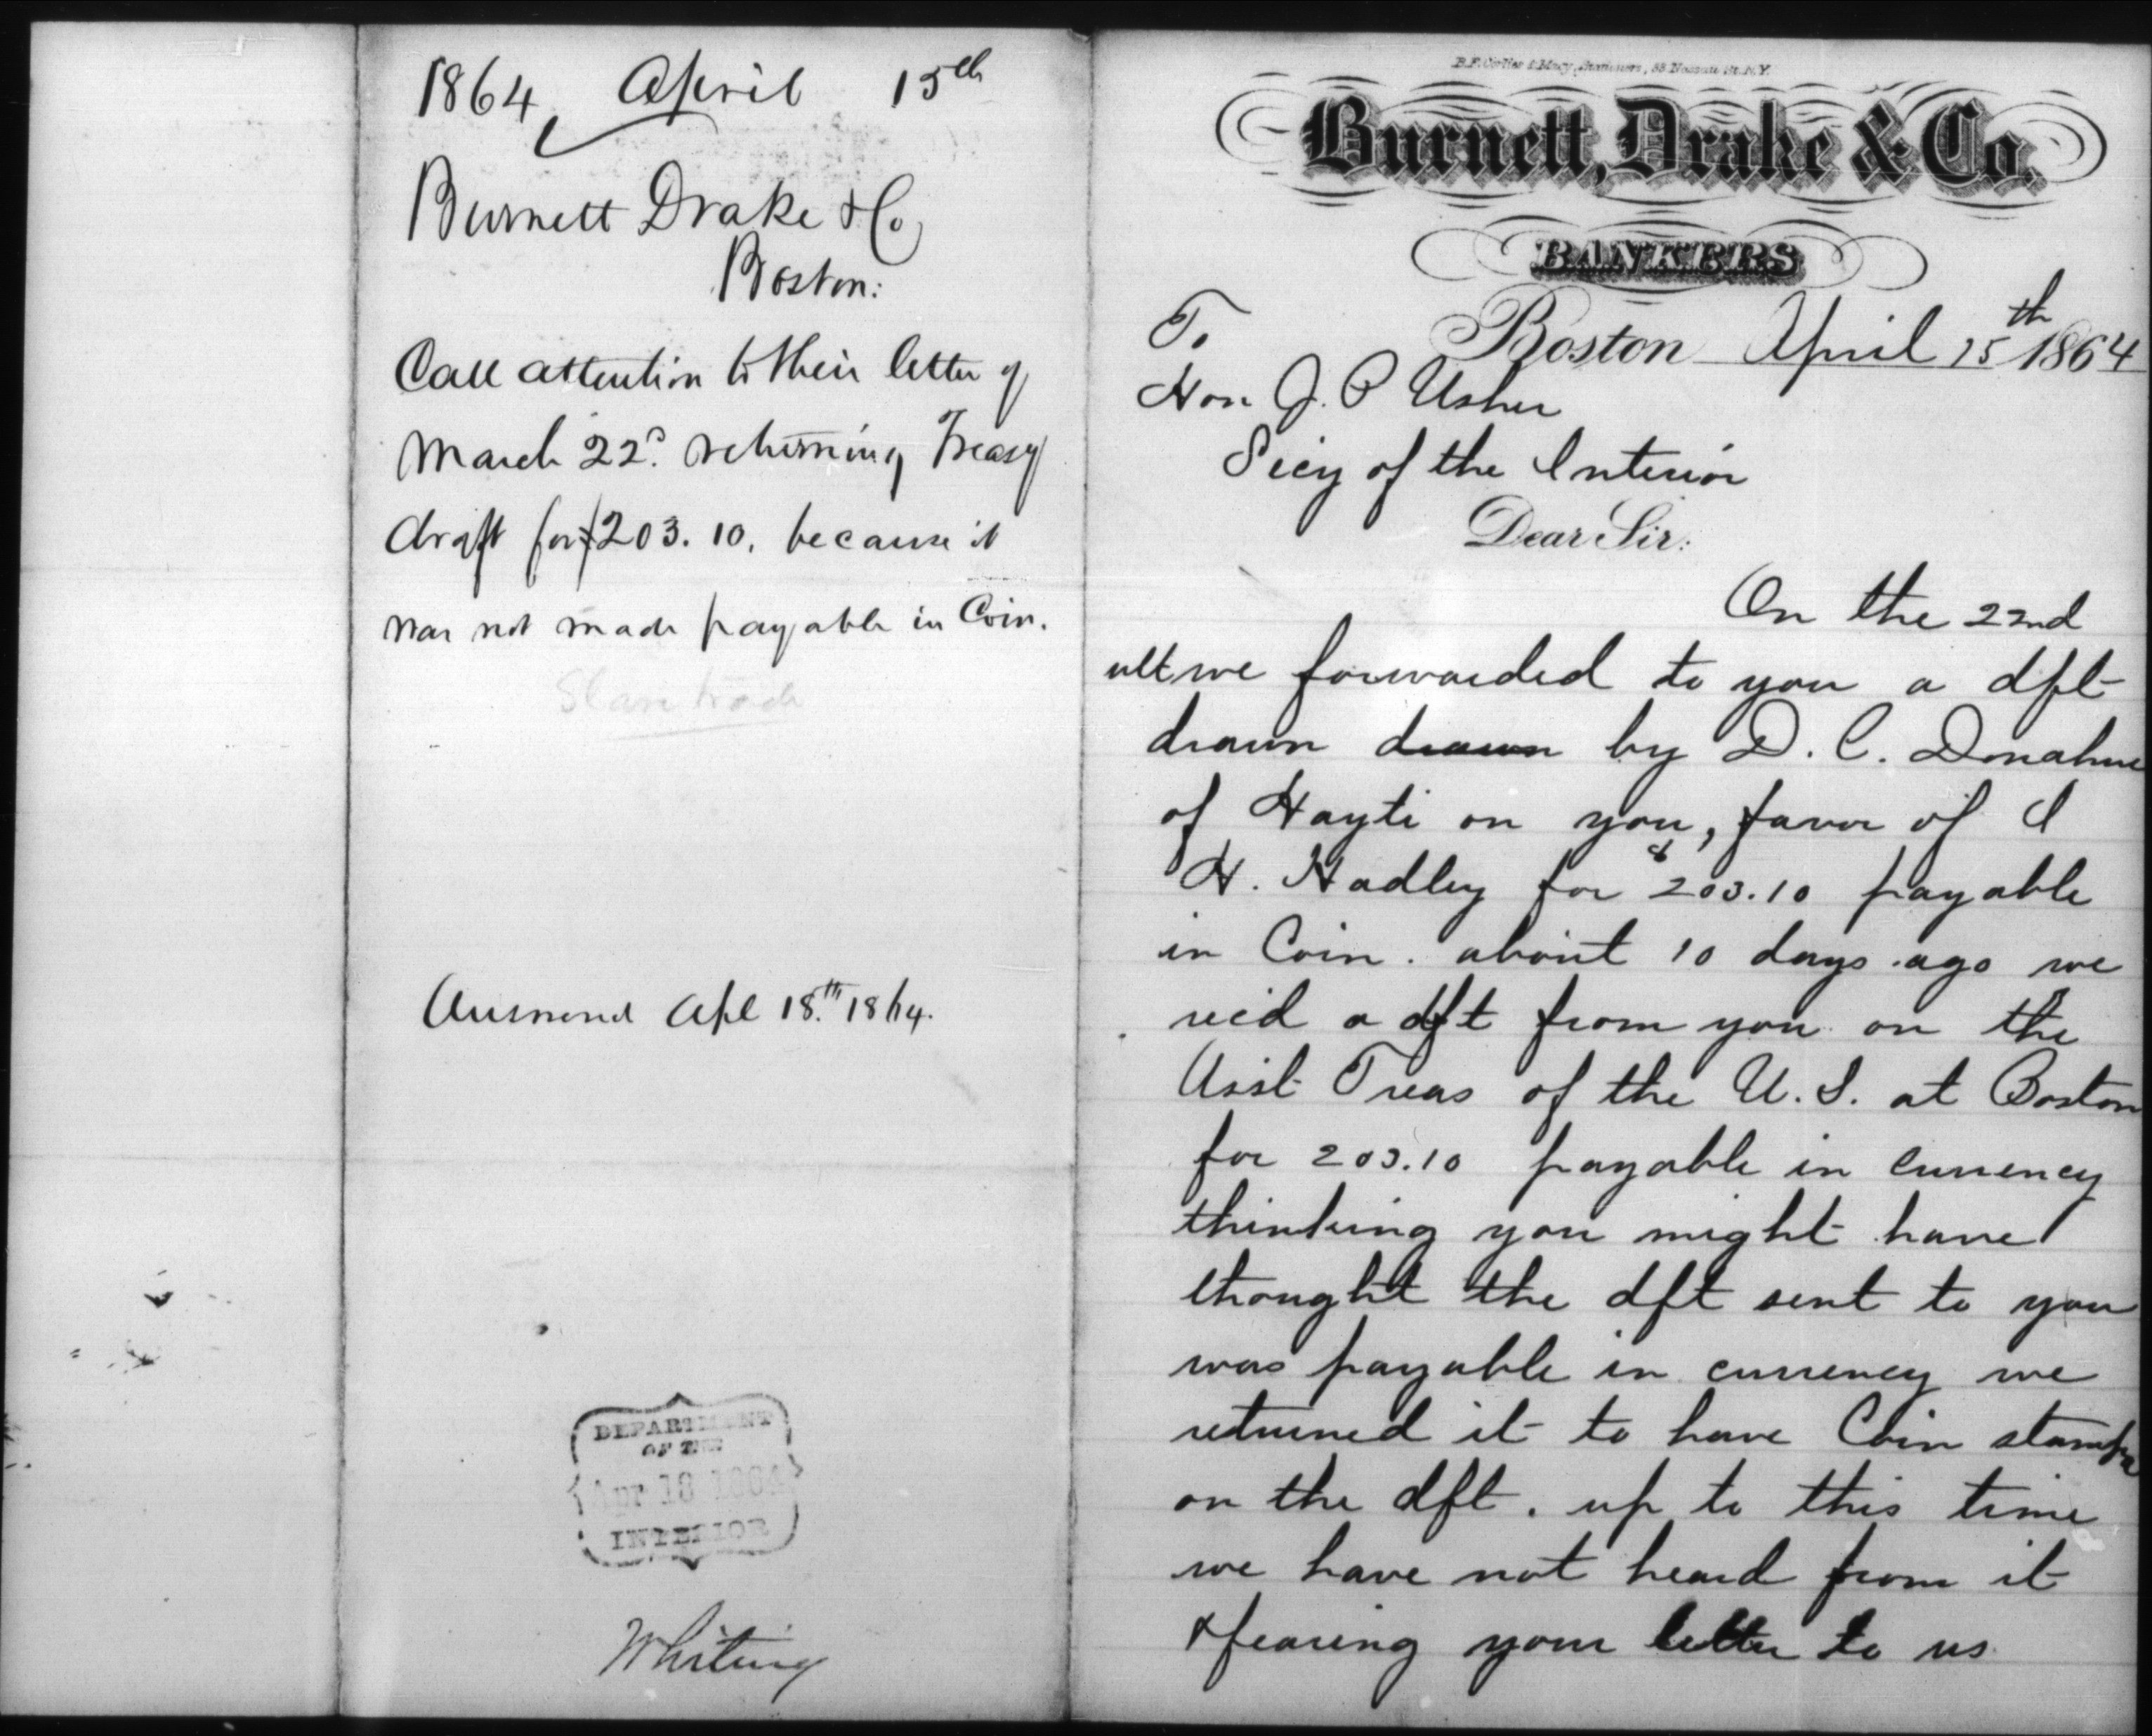 1864, April 15th
Burnett Drake & Co
Boston:
Call attention to their letter of
March 22d. returning Treasy
draft for $203.10. because it
was not made payable in Coin.
Slave trade
Answered Apl 18.th 1864.
DEPARTMENT
OF THE
Apr 18 1864
INTERIOR
Whiting
Burnett, Drake & Co.
BANKERS
Boston April 15th 1864
To
Hon J. P Usher
Secy of the Interior
Dear Sir:
On the 22nd
ult we forwarded to you a dft
drawn drawn by D. C. Donahue
of Hayti on you, favor of I
H. Hadley for $203.10 payable
in Coin. about 10 days ago we
recd a dft from you on the
Asst Treas of the U.S. at Boston
for 203.10 payable in currency
thinking you might have
thought the dft sent to you
was payable in currency we
returned it to have Coin stampd
on the dft. up to this time
we have not heard from it
& fearing your letter to us